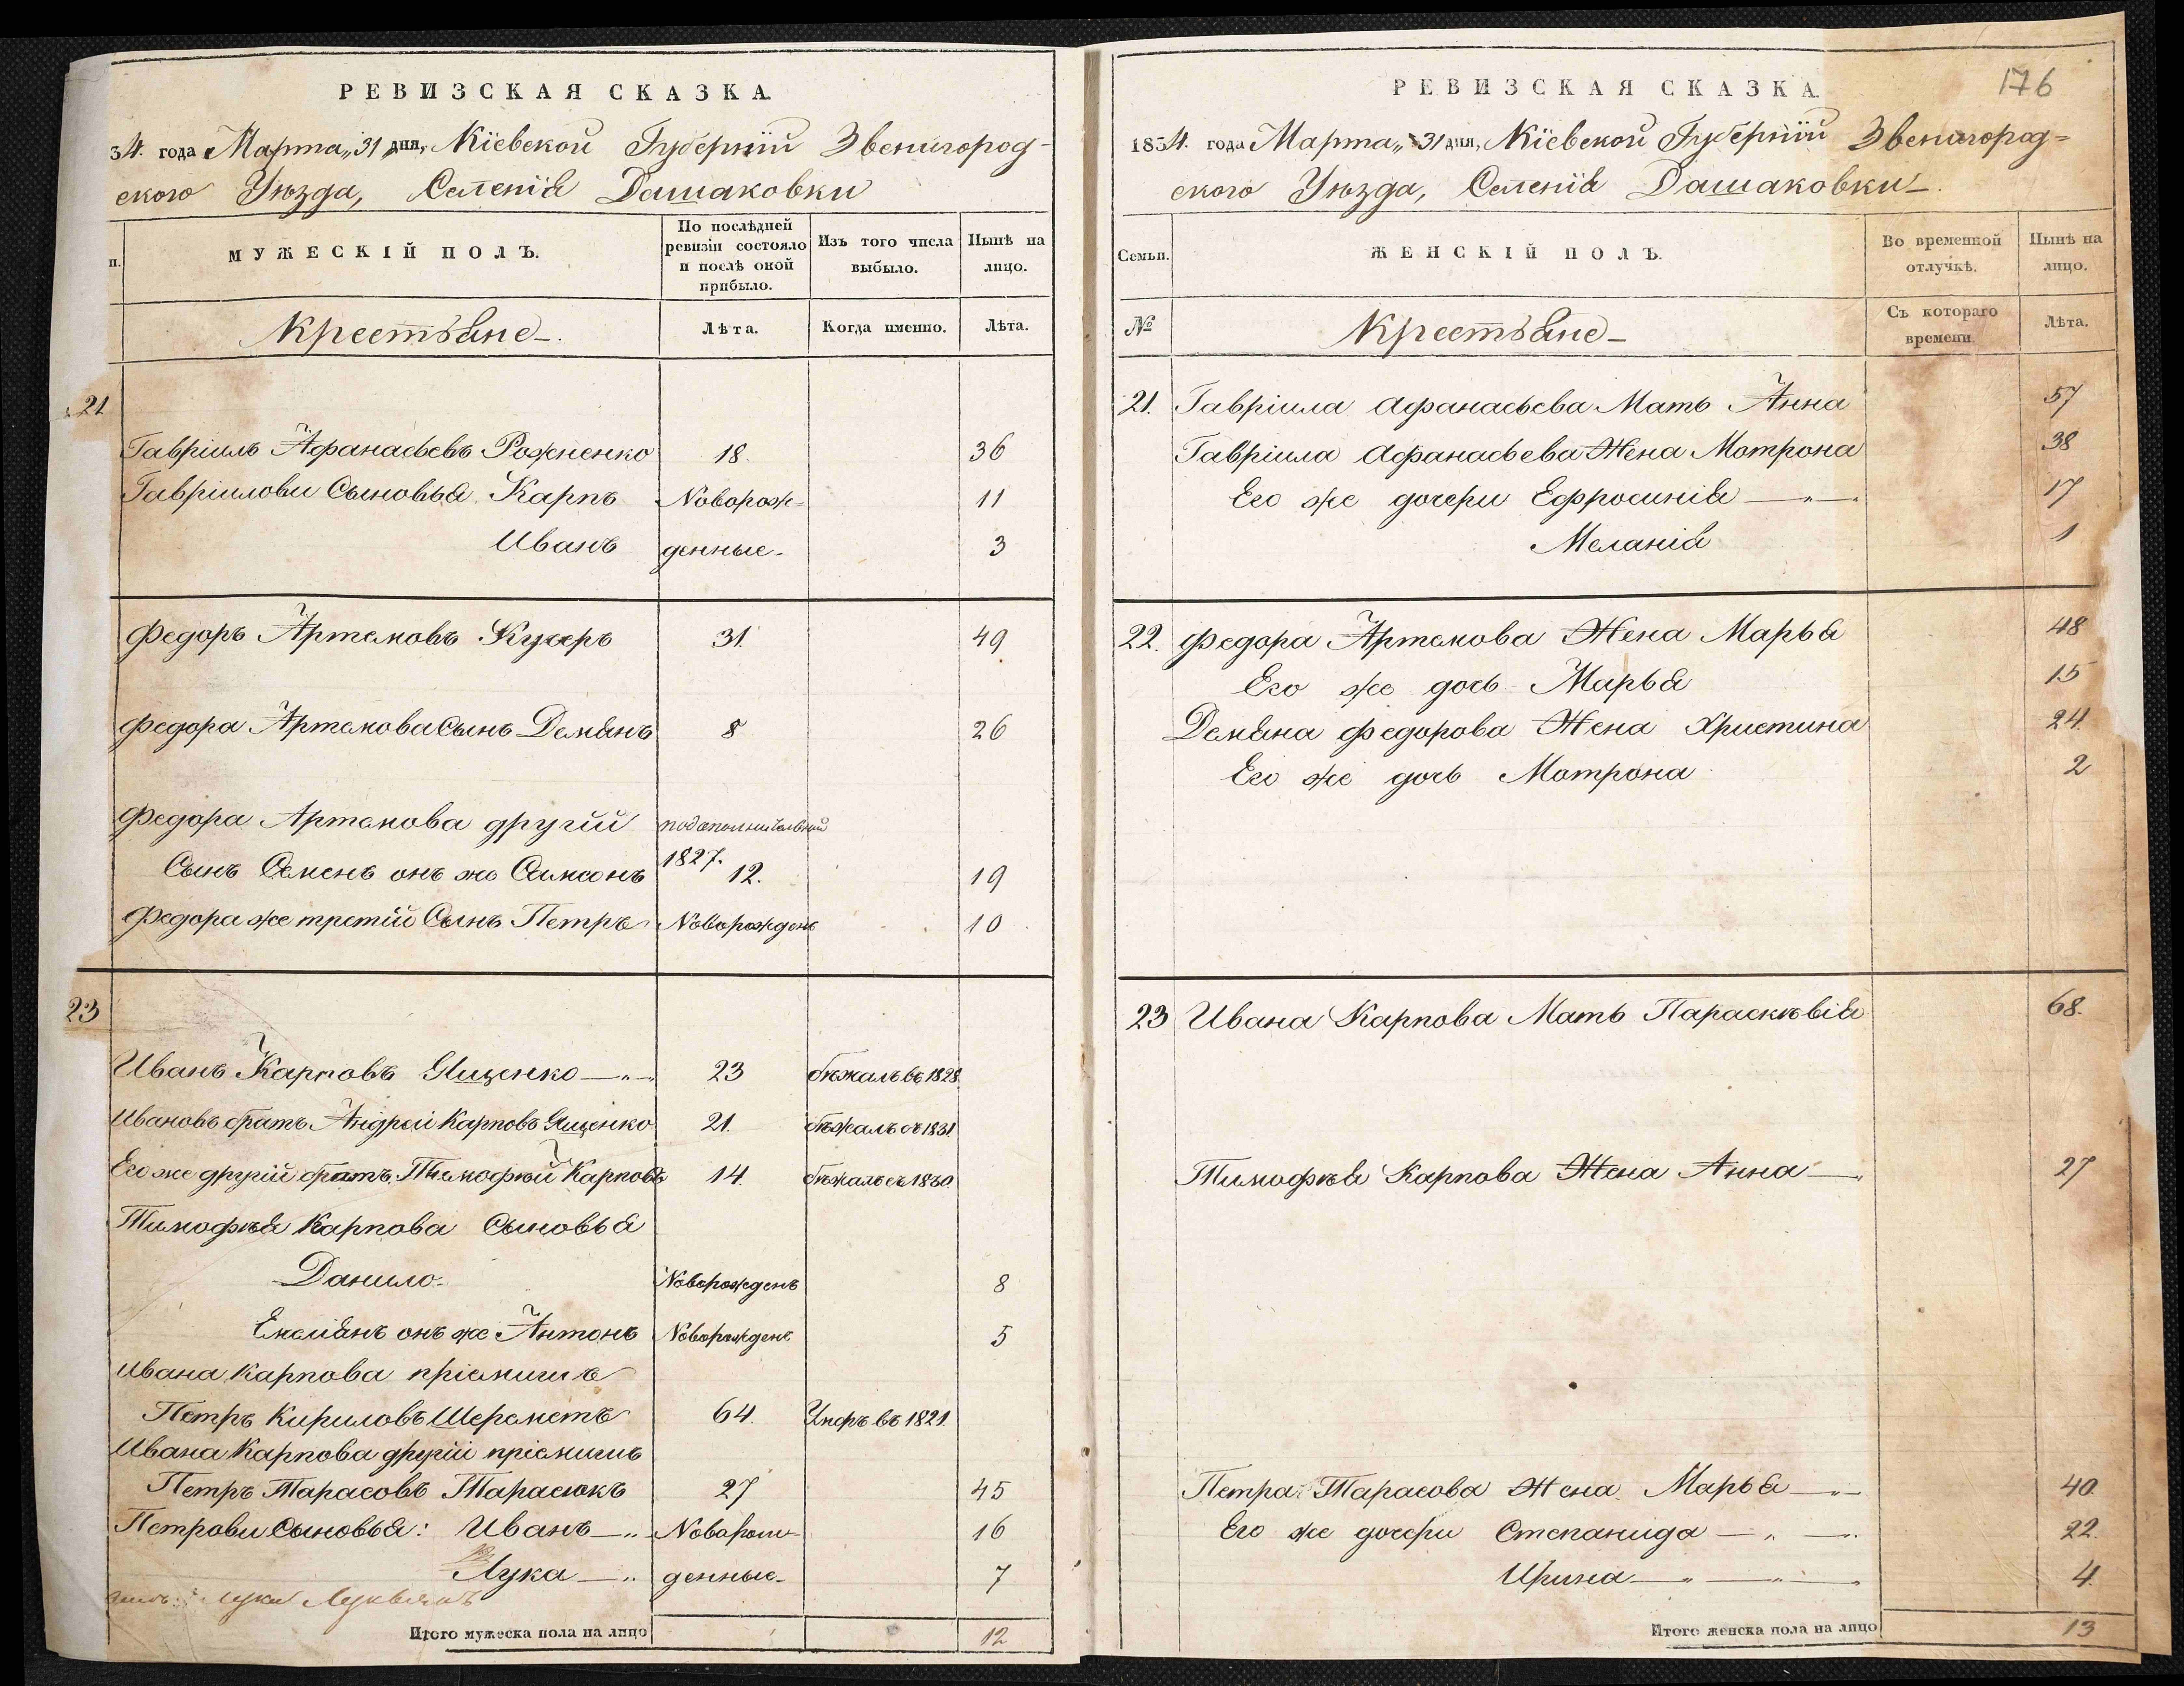 РЕВИЗСКАЯ СКАЗКА.
34. года Марта „31 дня, Кіевской Губерніи Звенигород-
ского Уѣзда, Селенія Дашаковки
п.
МУЖЕСКІЙ ПОЛЪ.
По послѣдней ревизіи состояло и послѣ оной прибыло.
Изъ того числа выбыло.
Нынѣ на лицо.
Крестьяне
Лѣта.
Когда именно.
Лѣта.
21
Гавріилъ Афанасьевъ Рожненко 18. 36
Гавріилови Сыновья Карпъ Новорож- 11
Иванъ денные 3
Федоръ Артемовъ Кучеръ 31. 49
Федора Артемова Сынъ Демянъ 8 26
Федора Артемова другій
1827.
Сынъ Семенъ онъ же Самсонъ 12. 19
Федора же третій Сынъ Петръ Новорожденъ 10
23
Иванъ Карповъ Яценко 23 бѣжалъ въ 1828.
Ивановъ братъ Андрей Карповъ Яценко 21. бѣжалъ въ 1831.
Его же другій братъ Тимофѣй Карповъ 14. бѣжалъ въ 1830.
Тимофѣя Карпова Сыновья
Данило Новорожденъ 8
Емеліянъ онъ же Антонъ Новорожденъ 5
Ивана Карпова пріемишъ
Петръ Кириловъ Шереметъ 64. Умеръ въ 1821.
Ивана Карпова другій пріемишъ
Петръ Тарасовъ Тарасюкъ 27 45
Петрови Сыновья: Иванъ Новорож- 16
Лука денные 7
Итого мужеска пола на лицо 12
176
РЕВИЗСКАЯ СКАЗКА.
1834. года Марта „31 дня, Кіевской Губерніи Звенигород=
ского Уѣзда, Селенія Дашаковки
Семьи.
ЖЕНСКІЙ ПОЛЪ.
Во временной отлучкѣ.
Нынѣ на лицо.
№
Крестьяне
Съ котораго времени.
Лѣта.
21. Гавріила Афанасьева Мать Анна 57
Гавріила Афанасьева Жена Мотрона 38
Его же дочери Ефросинія 17
Меланія 1
22. Федора Артемова Жена Марья 48
Его же дочь Марья 15
Демяна Федорова Жена Христина 24.
Его же дочь Мотрона 2
23 Ивана Карпова Мать Параскѣвія 68.
Тимофѣя Карпова Жена Анна 27
Петра Тарасова Жена Марья 40.
Его же дочери Степанида 22.
Ирина 4.
Итого женска пола на лицо 13